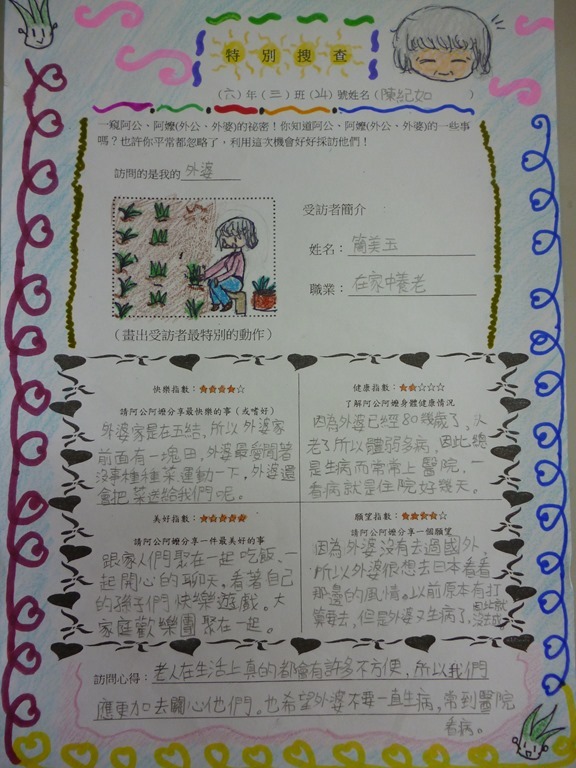 特別搜查
(六)年(三)班(24)號姓名(陳紀如)
一窺阿公、阿嬤(外公、外婆)的祕密！你知道阿公、阿嬤(外公、外婆)的一些事
嗎？也許你平常都忽略了，利用這次機會好好採訪他們！
訪問的是我的外婆
受訪者簡介
姓名：簡美玉
職業：在家中養老
(畫出受訪者最特別的動作)
快樂指數：★★★★☆
請阿公阿嬤分享最快樂的事(或嗜好)
外婆家是在五結，所以外婆家
前面有一塊田，外婆最愛閒著
沒事種種菜運動一下，外婆還
會把菜送給我們呢。
健康指數：★★☆☆☆
了解阿公阿嬤身體健康情況
因為外婆已經80幾歲了，人
老了所以體弱多病，因此總
是生病而常常上醫院，一
看病就是住院好幾天。
美好指數：★★★★★
請阿公阿嬤分享一件最美好的事
跟家人們聚在一起吃飯、一
起開心的聊天，看著自己
的孫子們快樂遊戲。大
家庭歡樂團聚在一起。
願望指數：★★★★☆
請阿公阿嬤分享一個願望
因為外婆沒有去過國外，
所以外婆很想去日本看看
那邊的風情。以前原本有打
算要去，但是外婆又生病了，因此就
沒去成
訪問心得：老人在生活上真的都會有許多不方便，所以我們
應更加去關心他們。也希望外婆不要一直生病，常到醫院
看病。